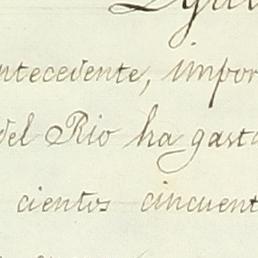 ntecedente, impor
del Rio ha gasta
cientos cincuent